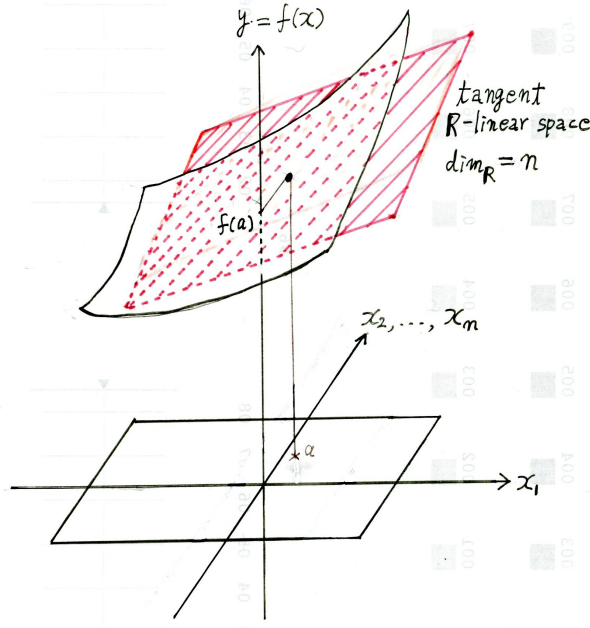 y = f(x)
tangent
R-linear space
dim_R = n
f(a)
x₂, ..., xₙ
a
x₁